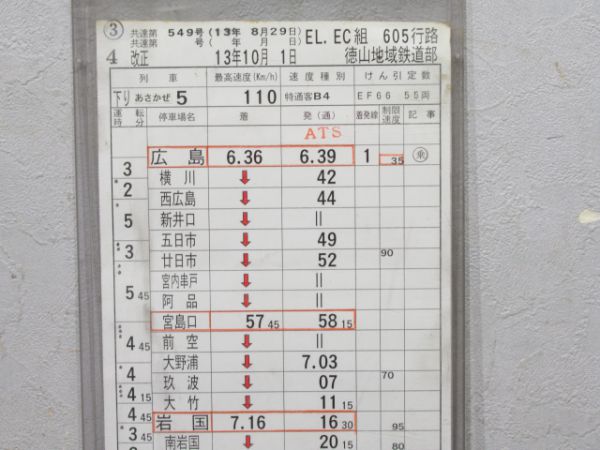 ③ 共速第 549号 (13年 8月29日) EL.EC組 605行路
共速第 号 ( 年 月 日) 徳山地域鉄道部
4 改正 13年10月 1日
列車 最高速度(Km/h) 速度種別 けん引定数
下り あさかぜ 5 110 特通客B4 EF66 55両
運転時分 停車場名 着 発(通) 着発線 制限速度 記事
ATS
広島 6.36 6.39 1 35 乗
3 横川 ↓ 42
2 西広島 ↓ 44
5 新井口 ↓ ||
五日市 ↓ 49 90
3 廿日市 ↓ 52
5 45 宮内串戸 ↓ ||
阿品 ↓ ||
宮島口 57 45 58 15
4 45 前空 ↓ ||
大野浦 ↓ 7.03
4 玖波 ↓ 07 70
4 15 大竹 ↓ 11 15
4 45 岩国 7.16 16 30 95
3 45 南岩国 ↓ 20 15 80